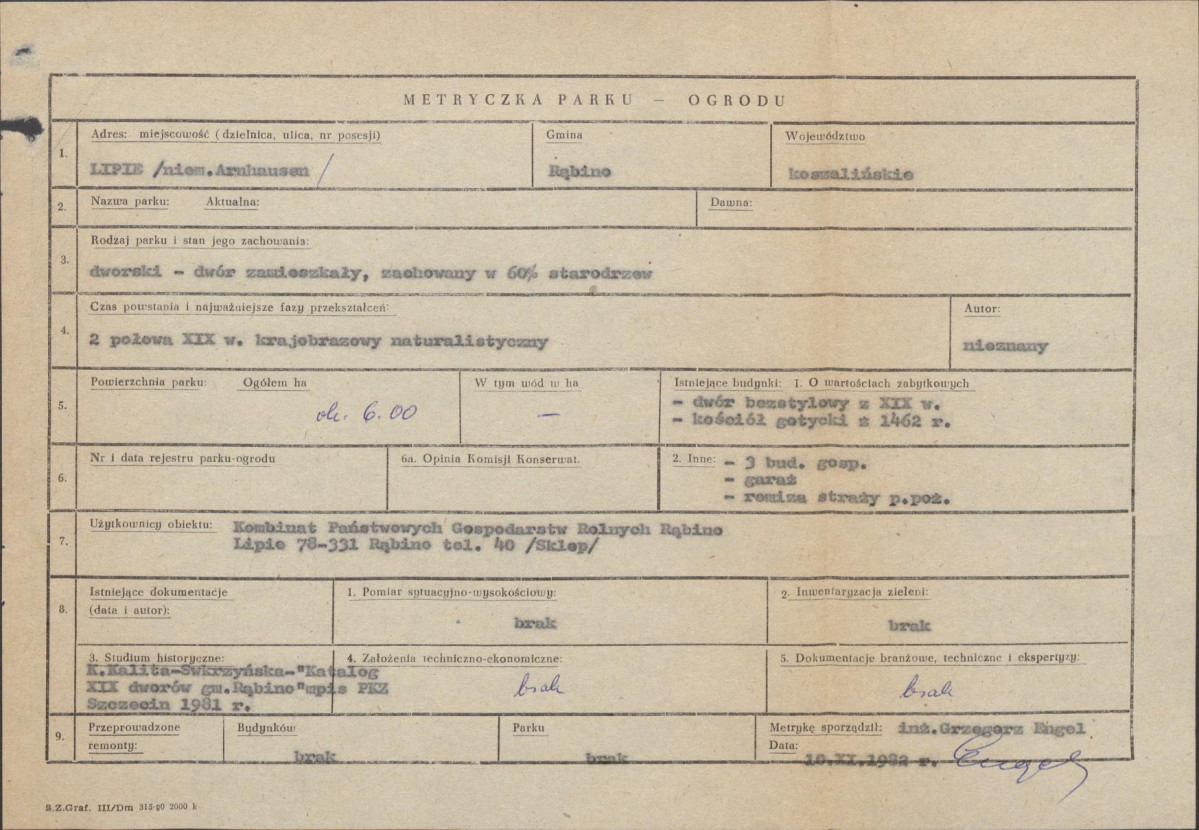 METRYCZKA PARKU — OGRODU
1.
Adres: miejscowość (dzielnica, ulica, nr posesji)
LIPIE /niem.Arnhausen/
Gmina
Rąbino
Województwo
koszalińskie
2.
Nazwa parku: Aktualna:
Dawna:
3.
Rodzaj parku i stan jego zachowania:
dworski - dwór zamieszkały, zachowany w 60% starodrzew
4.
Czas powstania i najważniejsze fazy przekształceń:
2 połowa XIX w. krajobrazowy naturalistyczny
Autor:
nieznany
5.
Powierzchnia parku: Ogółem ha
ok. 6.00
W tym wód w ha
—
Istniejące budynki: 1. O wartościach zabytkowych
- dwór bezstylowy z XIX w.
- kościół gotycki z 1462 r.
6.
Nr i data rejestru parku-ogrodu
6a. Opinia Komisji Konserwat.
2. Inne: - 3 bud. gosp.
- garaż
- remiza straży p.poż.
7.
Użytkownicy obiektu: Kombinat Państwowych Gospodarstw Rolnych Rąbino
Lipie 78-331 Rąbino tel. 40 /Sklep/
8.
Istniejące dokumentacje
(data i autor):
1. Pomiar sytuacyjno-wysokościowy:
brak
2. Inwentaryzacja zieleni:
brak
3. Studium historyczne:
K.Kalita-Swkrzyńska-"Katalog
XIX dworów gm.Rąbino"mpis PKZ
Szczecin 1981 r.
4. Założenia techniczno-ekonomiczne:
brak
5. Dokumentacje branżowe, techniczne i ekspertyzy:
brak
9.
Przeprowadzone
remonty:
Budynków
brak
Parku
brak
Metrykę sporządził: inż.Grzegorz Engel
Data:
10.XI.1982 r. Engel
S.Z.Graf. III/Dm 315-80 2000 k